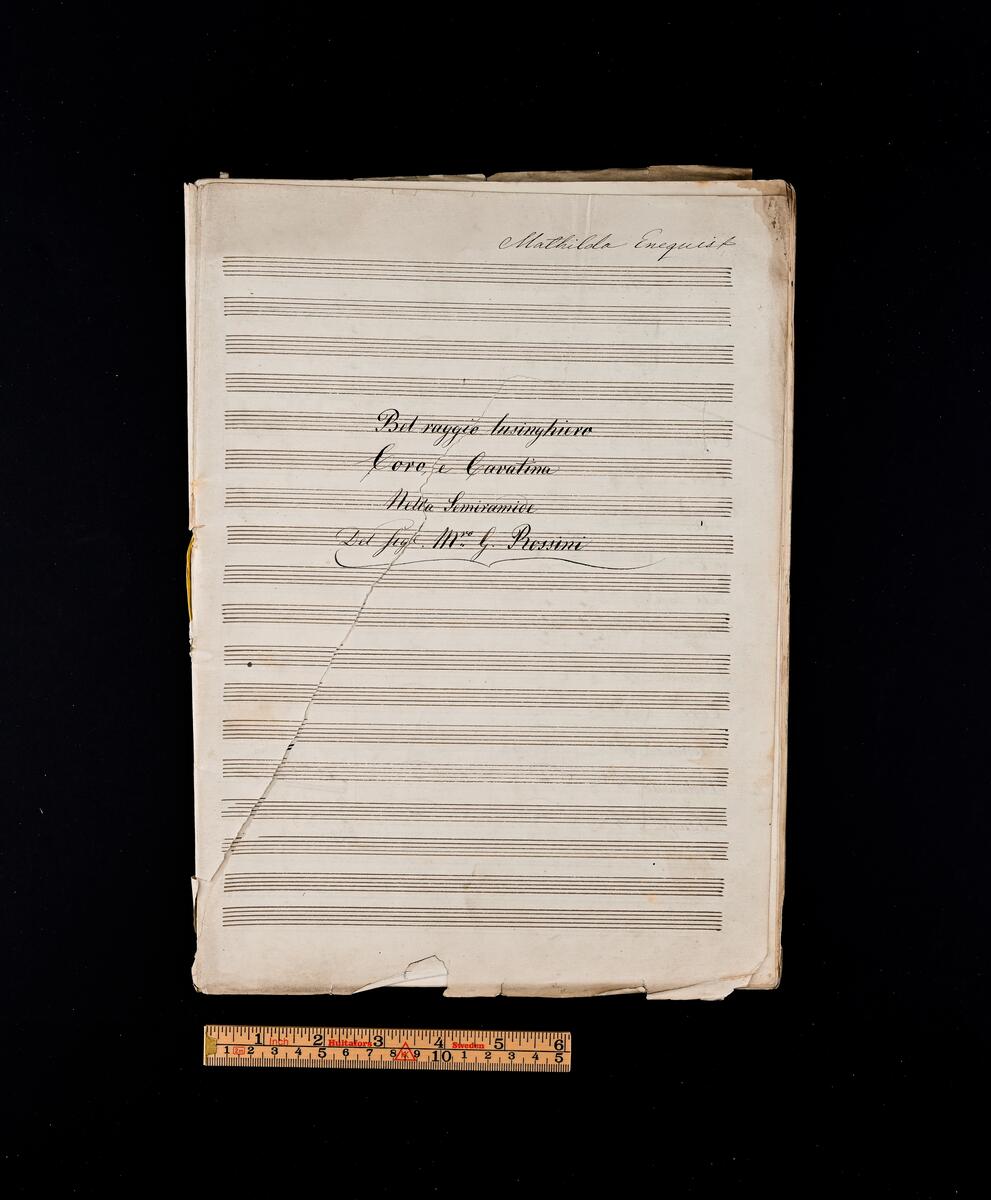 Mathilda Enequist
Bel raggio lusinghiero
Coro, e Cavatina
Nella Semiramide
Del Sigr. Mro. G. Rossini
1 inch 2 Hultafors 3 4 Sweden 5 6
1 2 3 4 5 6 7 8 9 10 1 2 3 4 5